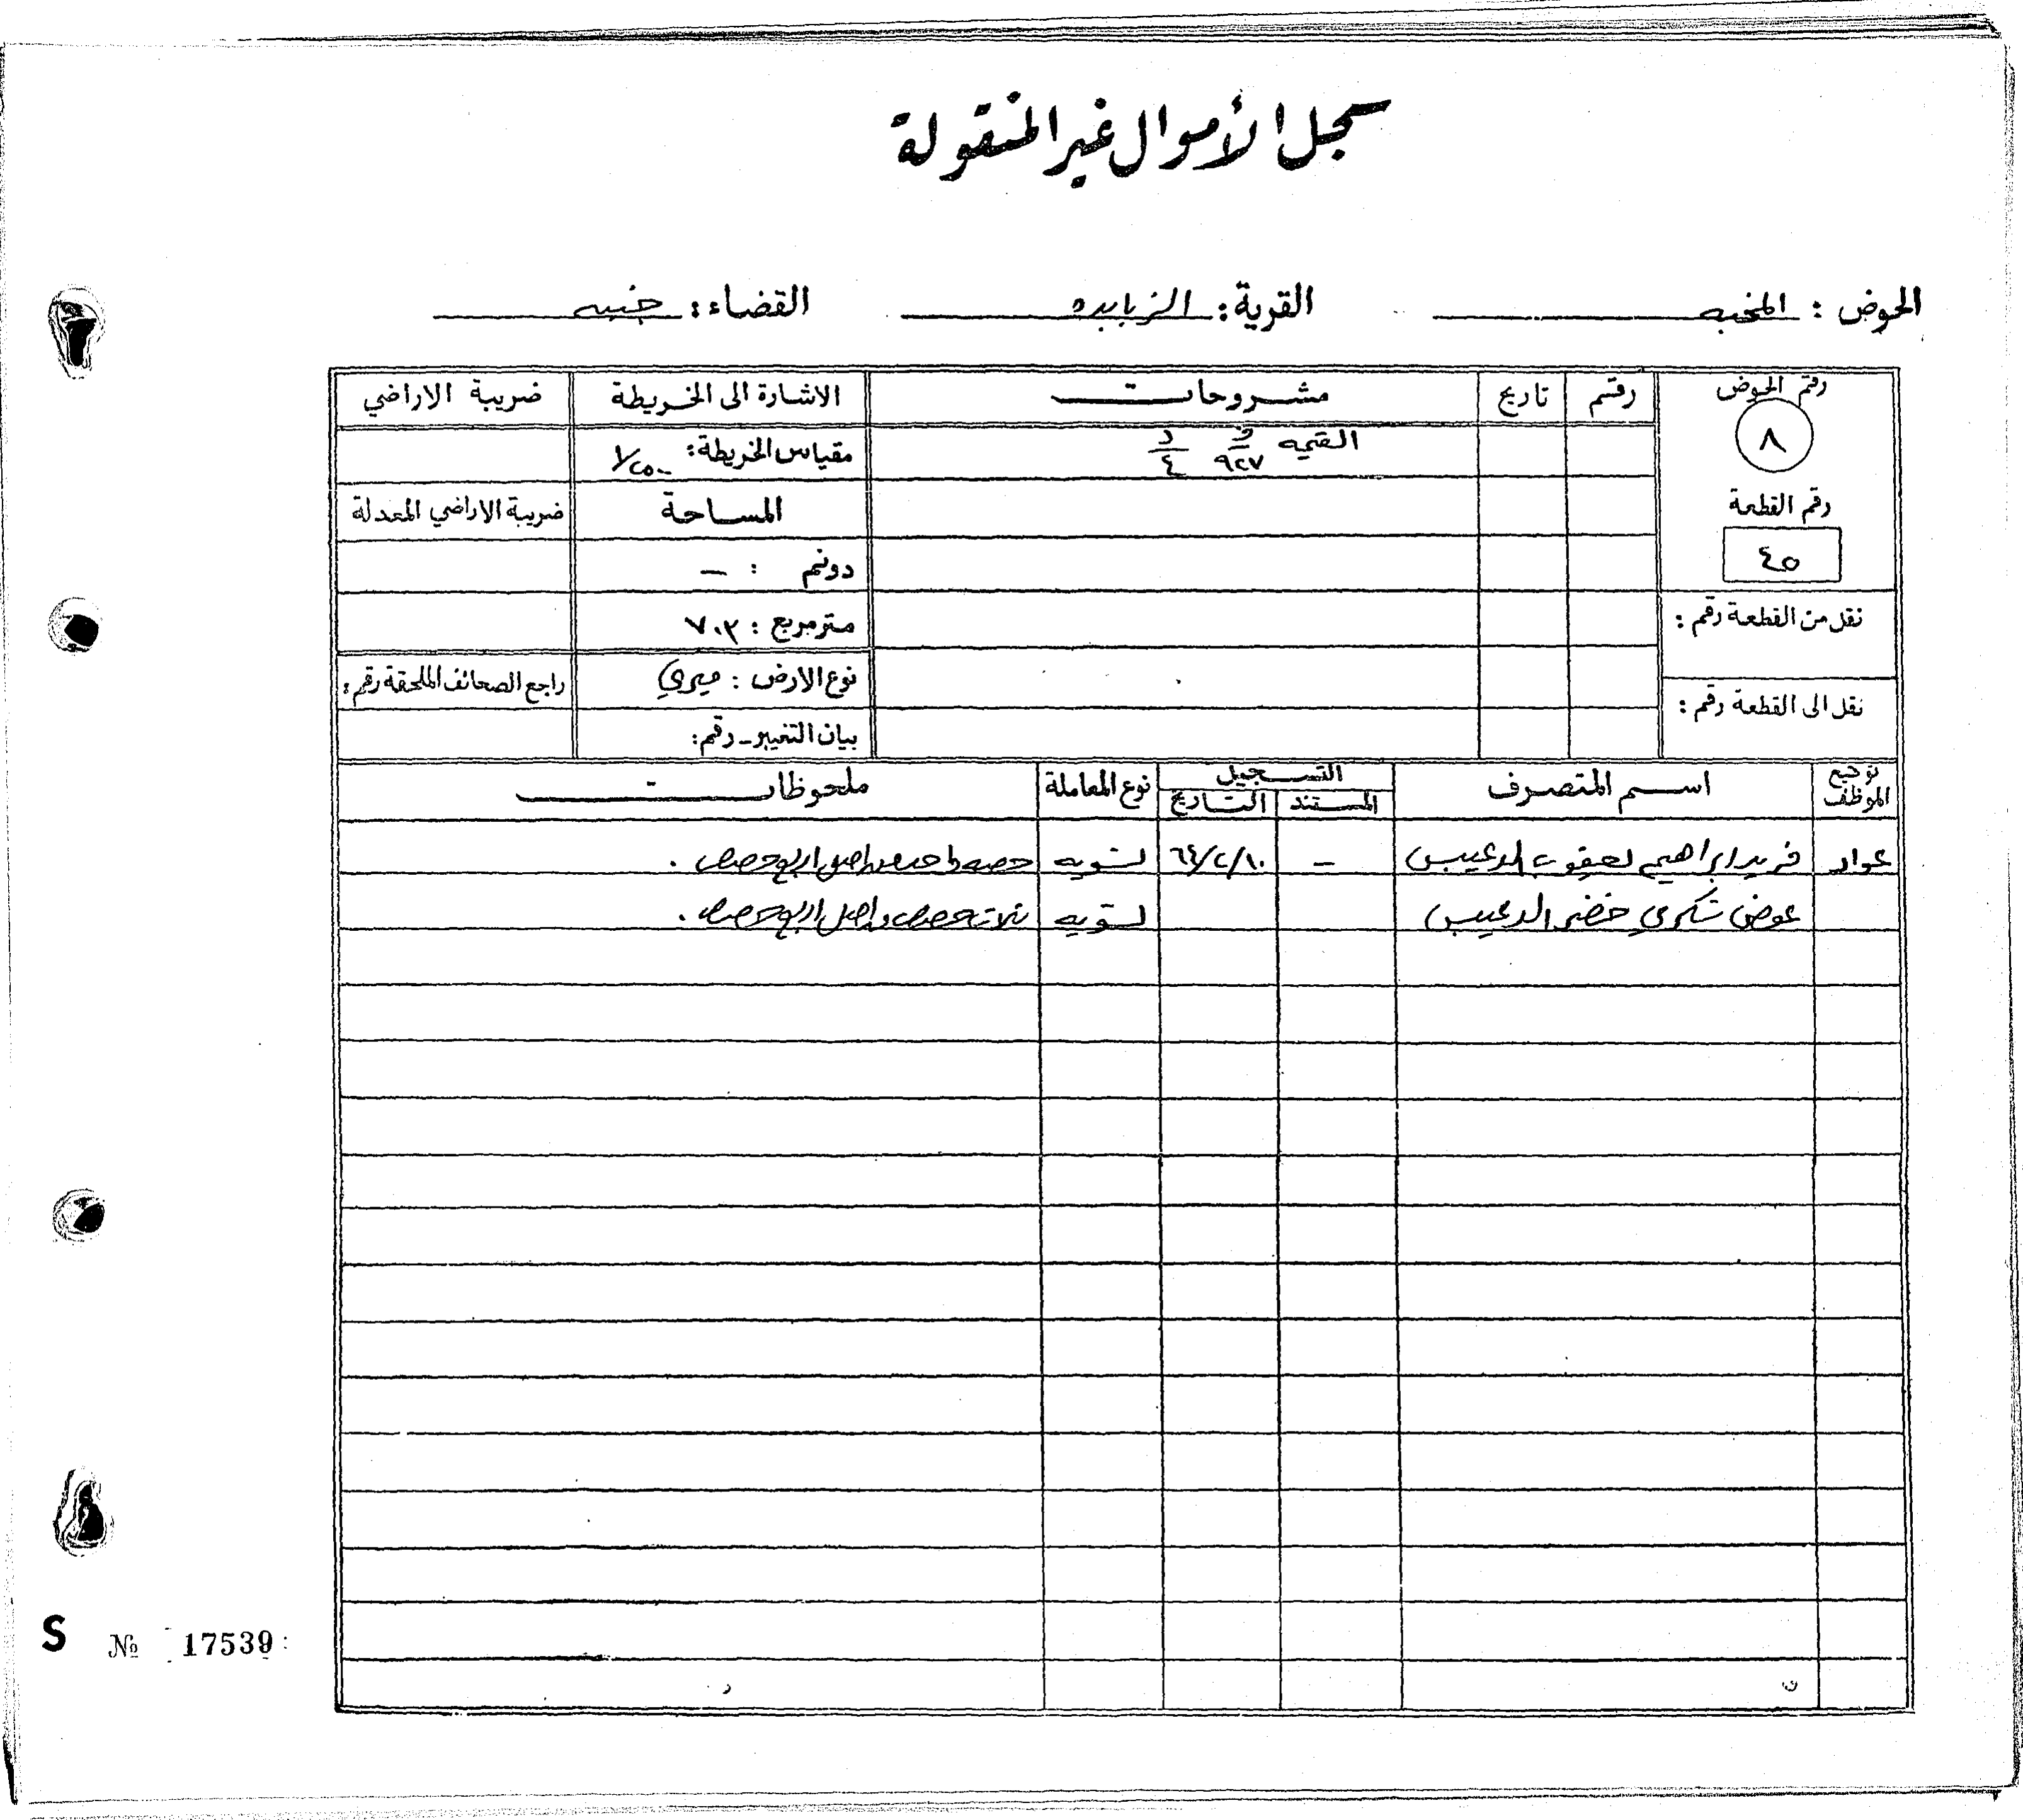 سجل الأموال غير المنقولة
الحوض : المخبه القرية : الزبابده القضاء : جنين
رقم الحوض رقم تاريخ مشروحات الاشارة الى الخريطة ضريبة الاراضي
٨ القيمه ف ٩٢٧ د ٤ مقياس الخريطة : ١/٢٥٠٠
رقم القطعة المساحة ضريبة الاراضي المعدلة
٤٥ دونم : —
نقل من القطعة رقم : متر مربع : ٧٠٣
نوع الارض : ميري راجع الصحائف الملحقة رقم :
نقل الى القطعة رقم : بيان التغيير - رقم :
توقيع الموظف اسم المتصرف التسجيل نوع المعاملة ملحوظات
المستند التاريخ
عواد فريد ابراهيم يعقوب الدعيبس — ٦٤/٢/١٠ تسويه حصه واحده من اصل اربع حصص .
عوض شكري خضر الدعيبس تسويه ثلاث حصص من اصل اربع حصص .
S № 17539